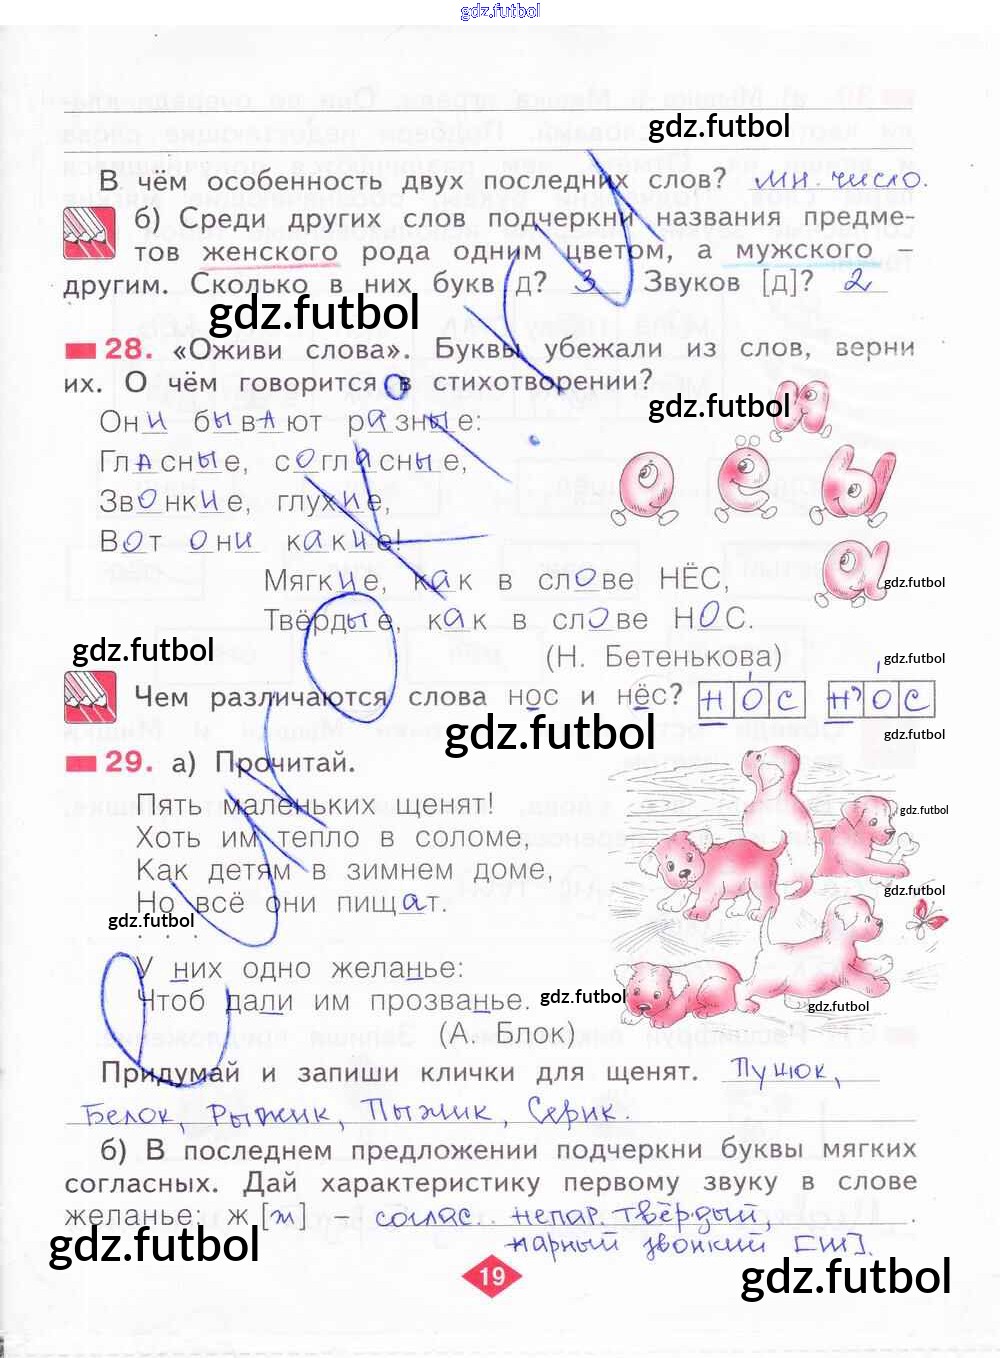 gdz.futbol
gdz.futbol
В чём особенность двух последних слов? мн. число.
б) Среди других слов подчеркни названия предме-
тов женского рода одним цветом, а мужского –
другим. Сколько в них букв д? 3 Звуков [д]? 2
gdz.futbol
28. «Оживи слова». Буквы убежали из слов, верни
их. О чём говорится в стихотворении?
gdz.futbol
Они бывают разные:
Гласные, согласные,
Звонкие, глухие,
Вот они какие!
Мягкие, как в слове НЁС,
gdz.futbol
Твёрдые, как в слове НОС.
gdz.futbol
(Н. Бетенькова)
gdz.futbol
Чем различаются слова нос и нёс? н о с н' о с
gdz.futbol
gdz.futbol
29. а) Прочитай.
Пять маленьких щенят!
gdz.futbol
Хоть им тепло в соломе,
Как детям в зимнем доме,
gdz.futbol
Но всё они пищат.
gdz.futbol
. . .
У них одно желанье:
Чтоб дали им прозванье.
gdz.futbol
gdz.futbol
(А. Блок)
Придумай и запиши клички для щенят. Пуцюк,
Белок, Рыжик, Пыжик, Серик.
б) В последнем предложении подчеркни буквы мягких
согласных. Дай характеристику первому звуку в слове
желанье: ж [ж] – соглас. непар. твёрдый,
парный звонкий [ш].
gdz.futbol
19
gdz.futbol